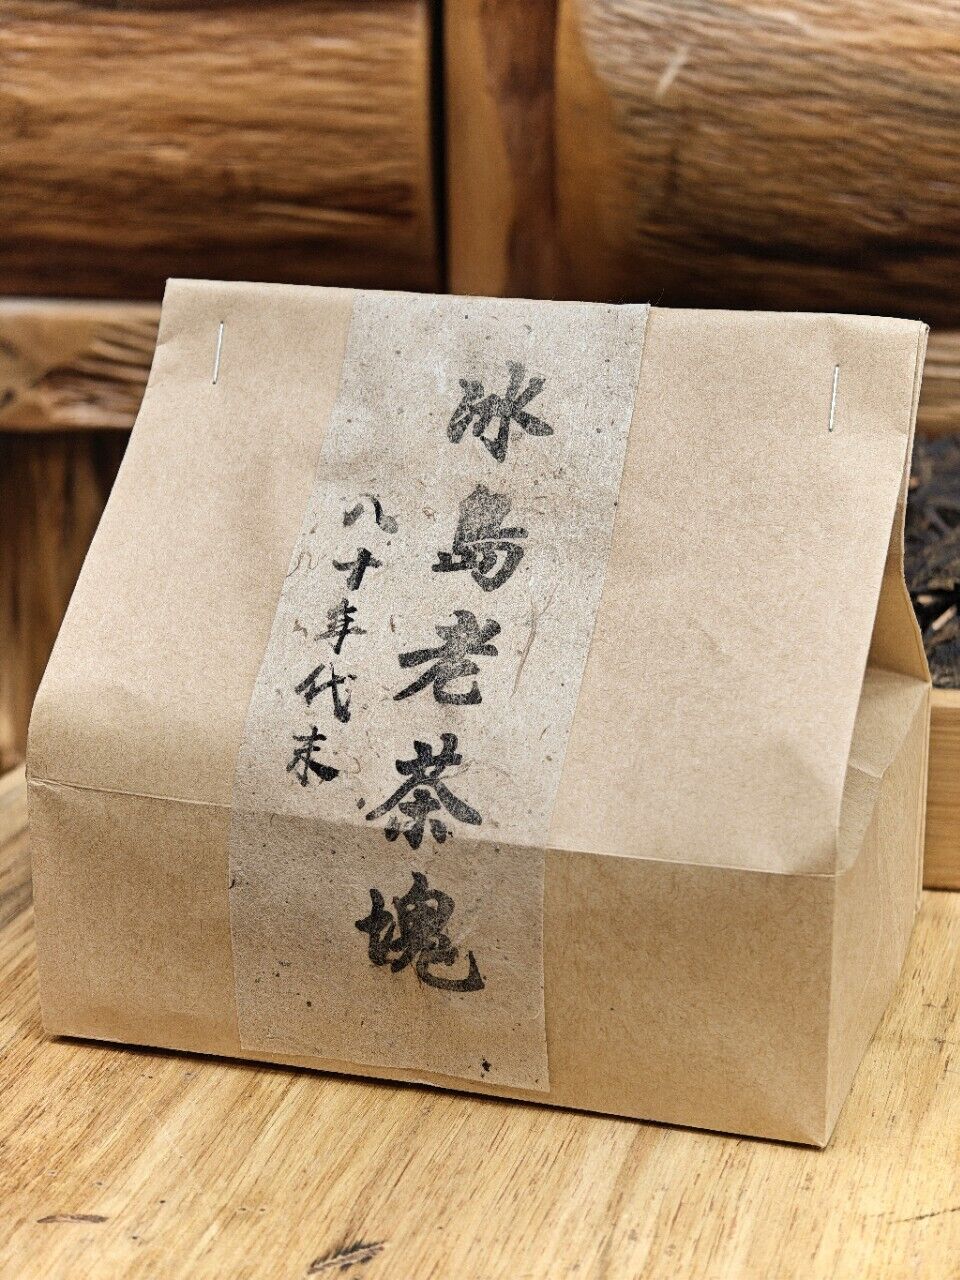 冰島老茶塊
八十年代末